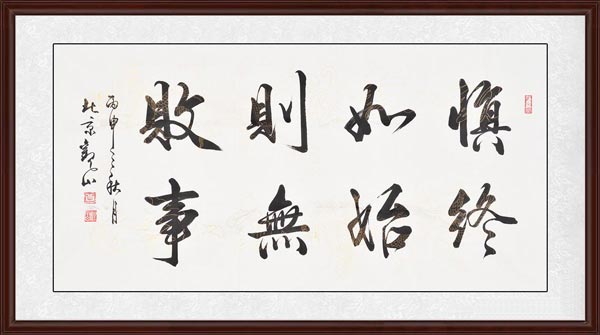 慎終
如始
則無
敗事
丙申之秋月
北京觀山